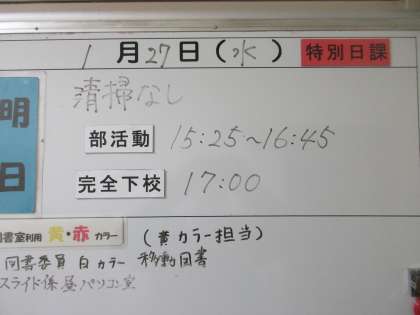 1月27日(水) 特別日課
明日
清掃なし
部活動 15:25~16:45
完全下校 17:00
図書室利用 黄・赤カラー (黄カラー担当)
図書委員 白カラー 移動図書
スライド係 昼パソコン室